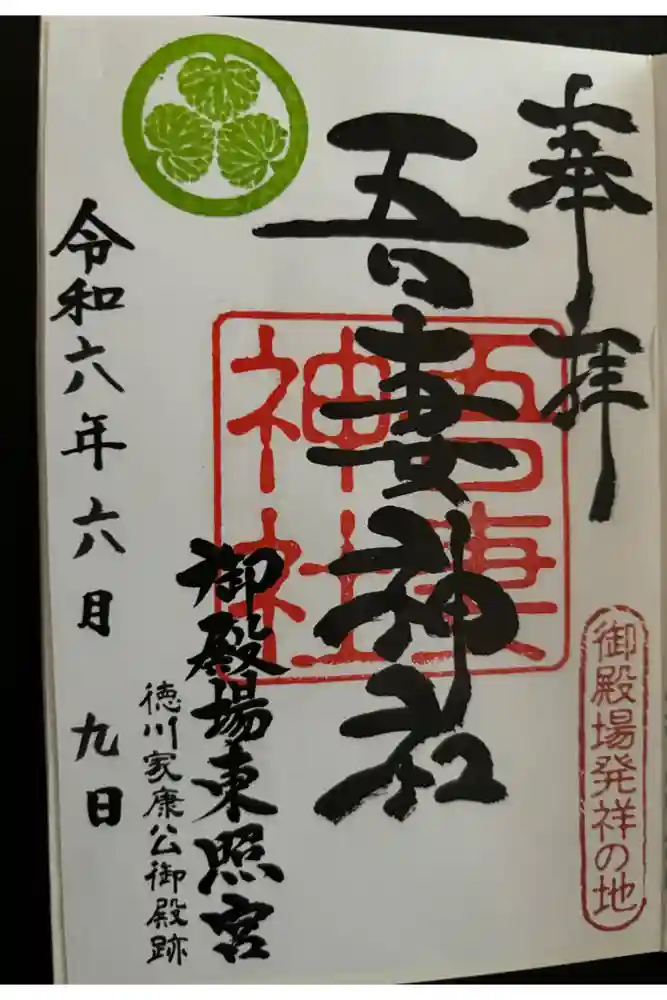 奉拝
御殿場発祥の地
吾妻神社
吾妻
神社
御殿場東照宮
徳川家康公御殿跡
令和六年六月九日